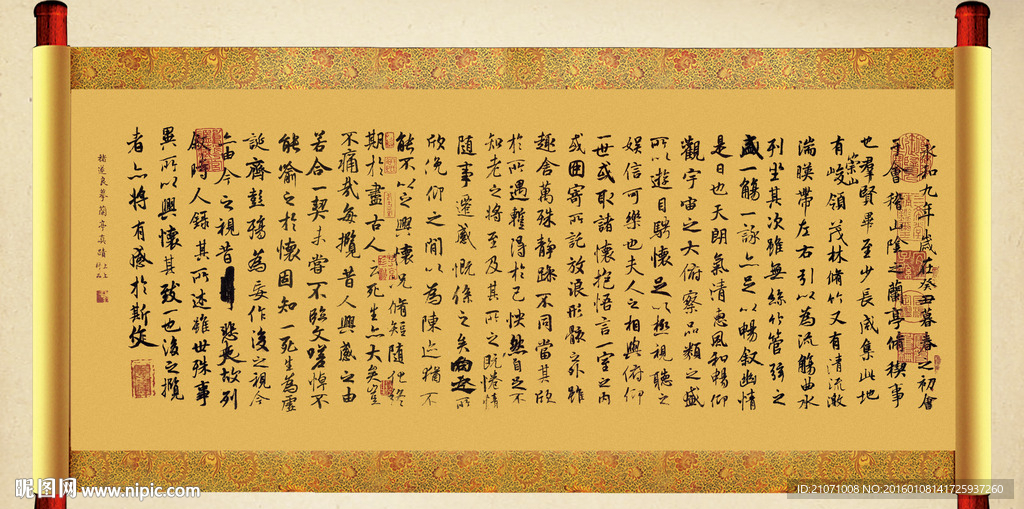 永和九年歲在癸丑暮春之初會
于會稽山陰之蘭亭脩稧事
也羣賢畢至少長咸集此地
有崇山峻領茂林脩竹又有清流激
湍暎帶左右引以為流觴曲水
列坐其次雖無絲竹管弦之
盛一觴一詠亦足以暢敘幽情
是日也天朗氣清惠風和暢仰
觀宇宙之大俯察品類之盛
所以遊目騁懷足以極視聽之
娛信可樂也夫人之相與俯仰
一世或取諸懷抱悟言一室之內
或因寄所託放浪形骸之外雖
趣舍萬殊靜躁不同當其欣
於所遇蹔得於己怏然自足不
知老之將至及其所之既惓情
隨事遷感慨係之矣向之所
欣俛仰之閒以為陳迹猶不
能不以之興懷況脩短隨化終
期於盡古人云死生亦大矣豈
不痛哉每攬昔人興感之由
若合一契未嘗不臨文嗟悼不
能喻之於懷固知一死生為虛
誕齊彭殤為妄作後之視今
亦由今之視昔悲夫故列
敘時人錄其所述雖世殊事
異所以興懷其致一也後之攬
者亦將有感於斯文
褚遂良摹蘭亭真蹟上上
昵图网 www.nipic.com
ID:21071008 NO:20160108141725937260